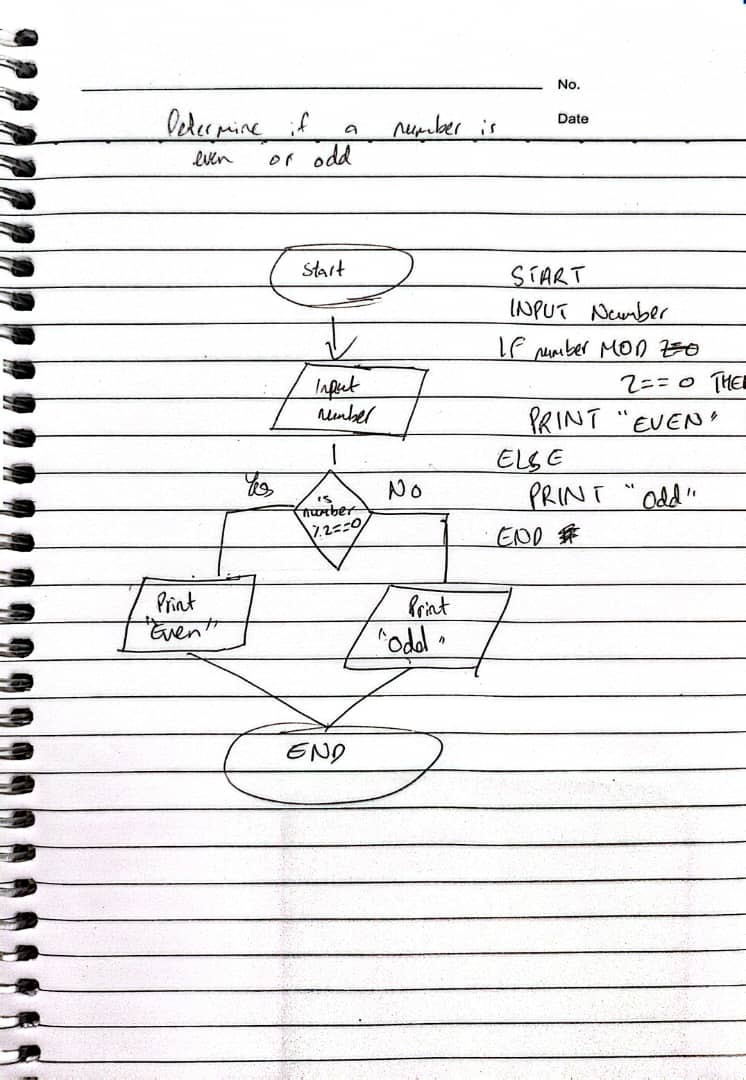 No.
Date
Determine if a number is
even or odd
Start
Input
number
Yes
is
number
%2==0
No
Print
"Even"
Print
"Odd"
END
START
INPUT Number
IF number MOD
2==0 THE
PRINT "EVEN"
ELSE
PRINT "Odd"
END